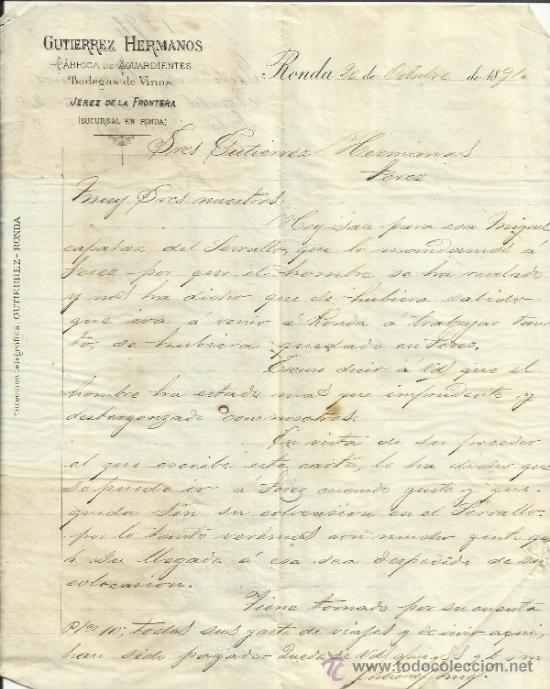 GUTIERREZ HERMANOS
FÁBRICA DE AGUARDIENTES
Bodegas de Vinos
JEREZ DE LA FRONTERA
(SUCURSAL EN RONDA)
Ronda 20 de Octubre de 189
Sres Gutierrez Hermanos
Jerez
Muy Sres nuestros:
Hoy sale para esa Miguel
capataz del Serrallo, que lo mandamos á
Jerez por que el hombre se ha revelado
y nos ha dicho que si hubiera sabido
que iva á venir á Ronda á trabajar tan
to, se hubiera quedado en Jerez.
Escuso decir a Vds que el
hombre ha estado mas que imprudente y
desbergonzado con nosotros.
En vista de su proceder
el que escribe esta carta, le ha dicho que
se puede ir á Jerez cuando guste y que
queda sin su colocasion en el Serrallo
por lo tanto veremos con mucho gusto qe
á su llegada á esa sea despedido de su
colocasion.
Tiene tomado por su cuenta
Ptas 10; todos sus gastos de viajes y de vivir aqui,
han sido pagado. Queda de Vds
Direccion telegráfica: GUTIERREZ-RONDA
todocoleccion
www.todocoleccion.net